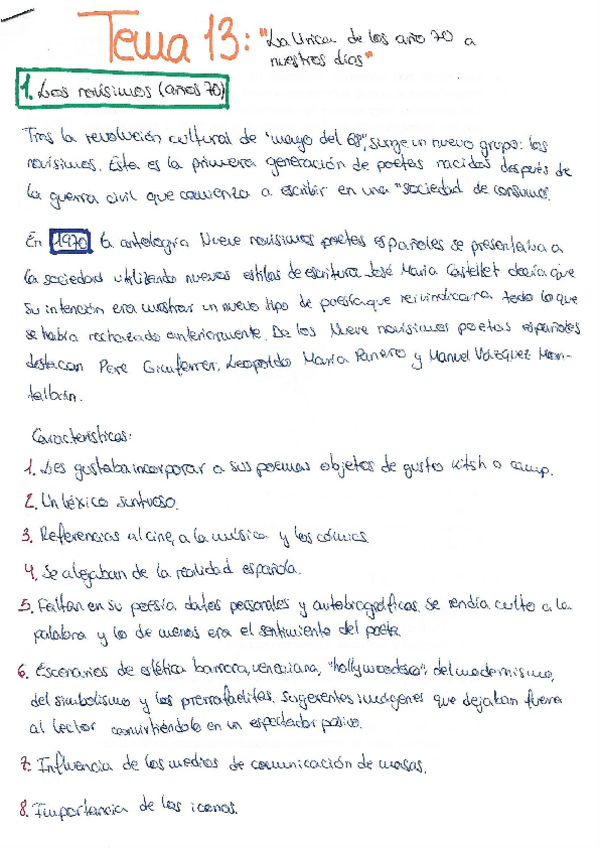 Tema 13: "La lírica de los año 70 a
nuestros días"
1. Los novísimos (años 70)
Tras la revolución cultural de "mayo del 68", surge un nuevo grupo: los
novísimos. Esta es la primera generación de poetas nacidos después de
la guerra civil que comienza a escribir en una "sociedad de consumo".
En 1970 la antología Nueve novísimos poetas españoles se presentaba a
la sociedad utilizando nuevos estilos de escritura. José María Castellet decía que
su intención era mostrar un nuevo tipo de poesía que reivindicara todo lo que
se había rechazado anteriormente. De los Nueve novísimos poetas españoles
destacan Pere Gimferrer, Leopoldo María Panero y Manuel Vázquez Mon-
talbán.
Características:
1. Les gustaba incorporar a sus poemas objetos de gusto kitsh o camp.
2. Un léxico suntuoso.
3. Referencias al cine, a la música y los cómics
4. Se alejaban de la realidad española.
5. Faltan en su poesía datos personales y autobiográficos. Se rendía culto a la
palabra y lo de menos era el sentimiento del poeta.
6. Escenarios de estética barroca, veneciana, "hollywoodesca", del modernismo,
del simbolismo y los prerrafaelitas. Sugerentes imágenes que dejaban fuera
al lector convirtiéndolo en un espectador pasivo.
7. Influencia de los medios de comunicación de masas.
8. Importancia de los iconos.